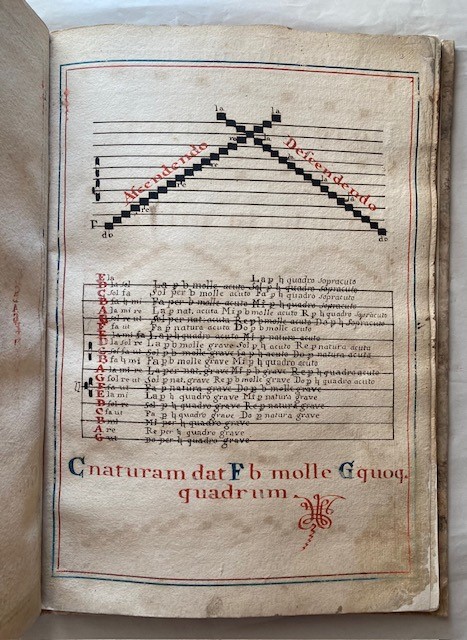 la la
Ascendendo Descendendo
Γ
do do
E la La p ♮ quadro sopracuto
D la sol La p b molle acuto Sol p ♮ quadro sopracuto
C sol fa Sol per b molle acuto Fa p ♮ quadro sopracuto
B fa ♮ mi Fa per b molle acuto Mi p ♮ quadro sopracuto
A la mi re La p nat. acuta Mi p b molle acuto R p ♮ quadro sopracuto
G Sol per nat. acuta Re p b molle acuto Do p ♮ sopracuto
F fa ut Fa p natura acuta Do p b molle acuto
E la mi La p ♮ quadro acuto Mi p natura acuta
D la sol re La p b molle grave Sol p ♮ acuto Re p natura acuta
C sol fa Sol p b molle grave Do p natura acuta
B fa ♮ mi Fa p b molle grave Mi p ♮ quadro acuto
A la mi re La per nat. grave Mi p b grave Re p ♮ quadro acuto
G sol re ut Sol p nat. grave Re p b molle grave Do p ♮ quadro acuto
F fa ut Fa p natura grave Do p b molle grave
E la mi La p ♮ quadro grave Mi p natura grave
D sol re Sol p ♮ quadro grave Re p natura grave
C fa ut Fa p ♮ quadro grave Do p natura grave
B mi Mi per ♮ quadro grave
A re Re per ♮ quadro grave
G ut Do per ♮ quadro grave
C naturam dat F b molle G quoq.
quadrum